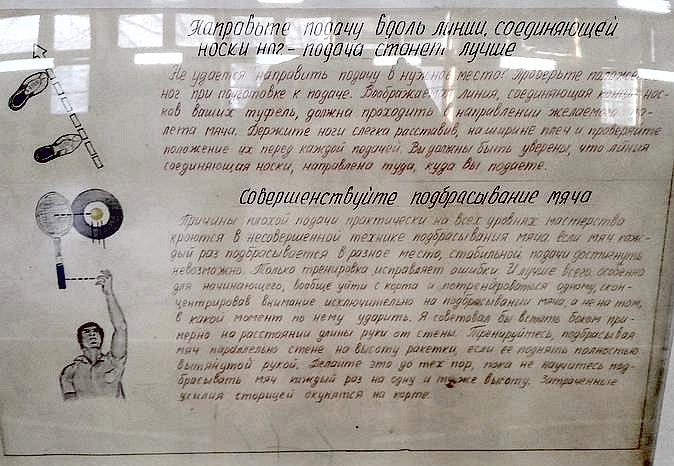 Направьте подачу вдоль линии, соединяющей
носки ног - подача станет лучше
Не удается направить подачу в нужное место? Проверьте положе-
ние ног при подготовке к подаче. Воображаемая линия, соединяющая концы нос-
ков ваших туфель, должна проходить в направлении желаемого по-
лета мяча. Держите ноги слегка расставив, на ширине плеч и проверяйте
положение их перед каждой подачей. Вы должны быть уверены, что линия
соединяющая носки, направлена туда, куда вы подаете.
Совершенствуйте подбрасывание мяча
Причины плохой подачи практически на всех уровнях мастерства
кроются в несовершенной технике подбрасывания мяча. если мяч каж-
дый раз подбрасывается в разное место, стабильной подачи достигнуть
невозможно. Только тренировка исправляет ошибки. И лучше всего, особенно
для начинающего, вообще уйти с корта и потренироваться одному, скон-
центрировав внимание исключительно на подбрасывании мяча, а не на том,
в какой момент по нему ударить. Я советовал бы встать боком при-
мерно на расстоянии длины руки от стены. Тренируйтесь, подбрасывая
мяч параллельно стене на высоту ракетки, если ее поднять полностью
вытянутой рукой. Делайте это до тех пор, пока не научитесь под-
брасывать мяч каждый раз на одну и ту же высоту. Затраченные
усилия сторицей окупятся на корте.